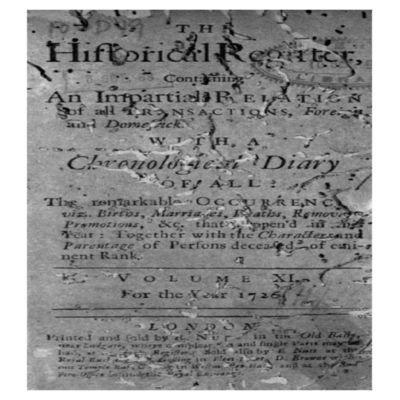 THE
Historical Register,
Containing
An Impartial RELATION
of all TRANSACTIONS, Foreign
and Domestick.
WITH A
Chronological Diary
OF ALL
The remarkable OCCURRENCES,
viz. Births, Marriages, Deaths, Removes,
Promotions, &c. that happen'd in this
Year: Together with the Characters and
Parentage of Persons deceased, of emi-
nent Rank.
VOLUME XI.
For the Year 1726.
LONDON,
Printed and sold by Nutt, in the Old Baily,
near Ludgate, where
Register; Sold also by E. Nutt at the
Royal D. Browne
Temple-Bar, and at the